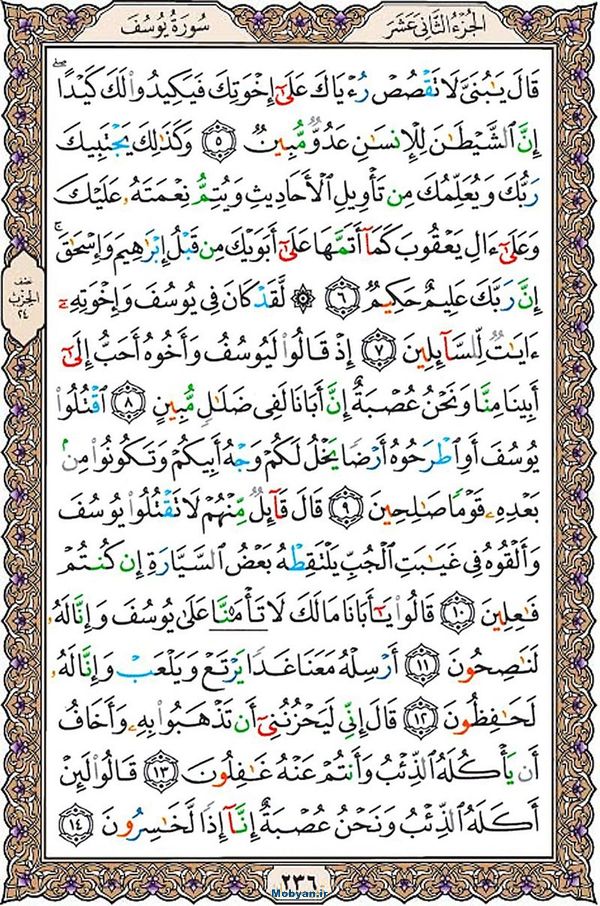 الجزء الثاني عشر
سورة يوسف
قَالَ يَٰبُنَيَّ لَا تَقْصُصْ رُءْيَاكَ عَلَىٰٓ إِخْوَتِكَ فَيَكِيدُوا۟ لَكَ كَيْدًا
إِنَّ ٱلشَّيْطَٰنَ لِلْإِنسَٰنِ عَدُوٌّ مُّبِينٌ ٥ وَكَذَٰلِكَ يَجْتَبِيكَ
رَبُّكَ وَيُعَلِّمُكَ مِن تَأْوِيلِ ٱلْأَحَادِيثِ وَيُتِمُّ نِعْمَتَهُۥ عَلَيْكَ
وَعَلَىٰٓ ءَالِ يَعْقُوبَ كَمَآ أَتَمَّهَا عَلَىٰٓ أَبَوَيْكَ مِن قَبْلُ إِبْرَٰهِيمَ وَإِسْحَٰقَ ۚ
إِنَّ رَبَّكَ عَلِيمٌ حَكِيمٌ ٦ ۞ لَّقَدْ كَانَ فِى يُوسُفَ وَإِخْوَتِهِۦٓ
ءَايَٰتٌ لِّلسَّآئِلِينَ ٧ إِذْ قَالُوا۟ لَيُوسُفُ وَأَخُوهُ أَحَبُّ إِلَىٰٓ
أَبِينَا مِنَّا وَنَحْنُ عُصْبَةٌ إِنَّ أَبَانَا لَفِى ضَلَٰلٍ مُّبِينٍ ٨ ٱقْتُلُوا۟
يُوسُفَ أَوِ ٱطْرَحُوهُ أَرْضًا يَخْلُ لَكُمْ وَجْهُ أَبِيكُمْ وَتَكُونُوا۟ مِنۢ
بَعْدِهِۦ قَوْمًا صَٰلِحِينَ ٩ قَالَ قَآئِلٌ مِّنْهُمْ لَا تَقْتُلُوا۟ يُوسُفَ
وَأَلْقُوهُ فِى غَيَٰبَتِ ٱلْجُبِّ يَلْتَقِطْهُ بَعْضُ ٱلسَّيَّارَةِ إِن كُنتُمْ
فَٰعِلِينَ ١٠ قَالُوا۟ يَٰٓأَبَانَا مَالَكَ لَا تَأْمَ۫نَّا عَلَىٰ يُوسُفَ وَإِنَّا لَهُۥ
لَنَٰصِحُونَ ١١ أَرْسِلْهُ مَعَنَا غَدًا يَرْتَعْ وَيَلْعَبْ وَإِنَّا لَهُۥ
لَحَٰفِظُونَ ١٢ قَالَ إِنِّى لَيَحْزُنُنِىٓ أَن تَذْهَبُوا۟ بِهِۦ وَأَخَافُ
أَن يَأْكُلَهُ ٱلذِّئْبُ وَأَنتُمْ عَنْهُ غَٰفِلُونَ ١٣ قَالُوا۟ لَئِنْ
أَكَلَهُ ٱلذِّئْبُ وَنَحْنُ عُصْبَةٌ إِنَّآ إِذًا لَّخَٰسِرُونَ ١٤
نصف
الحزب
٢٤
٢٣٦
Mobyan.ir